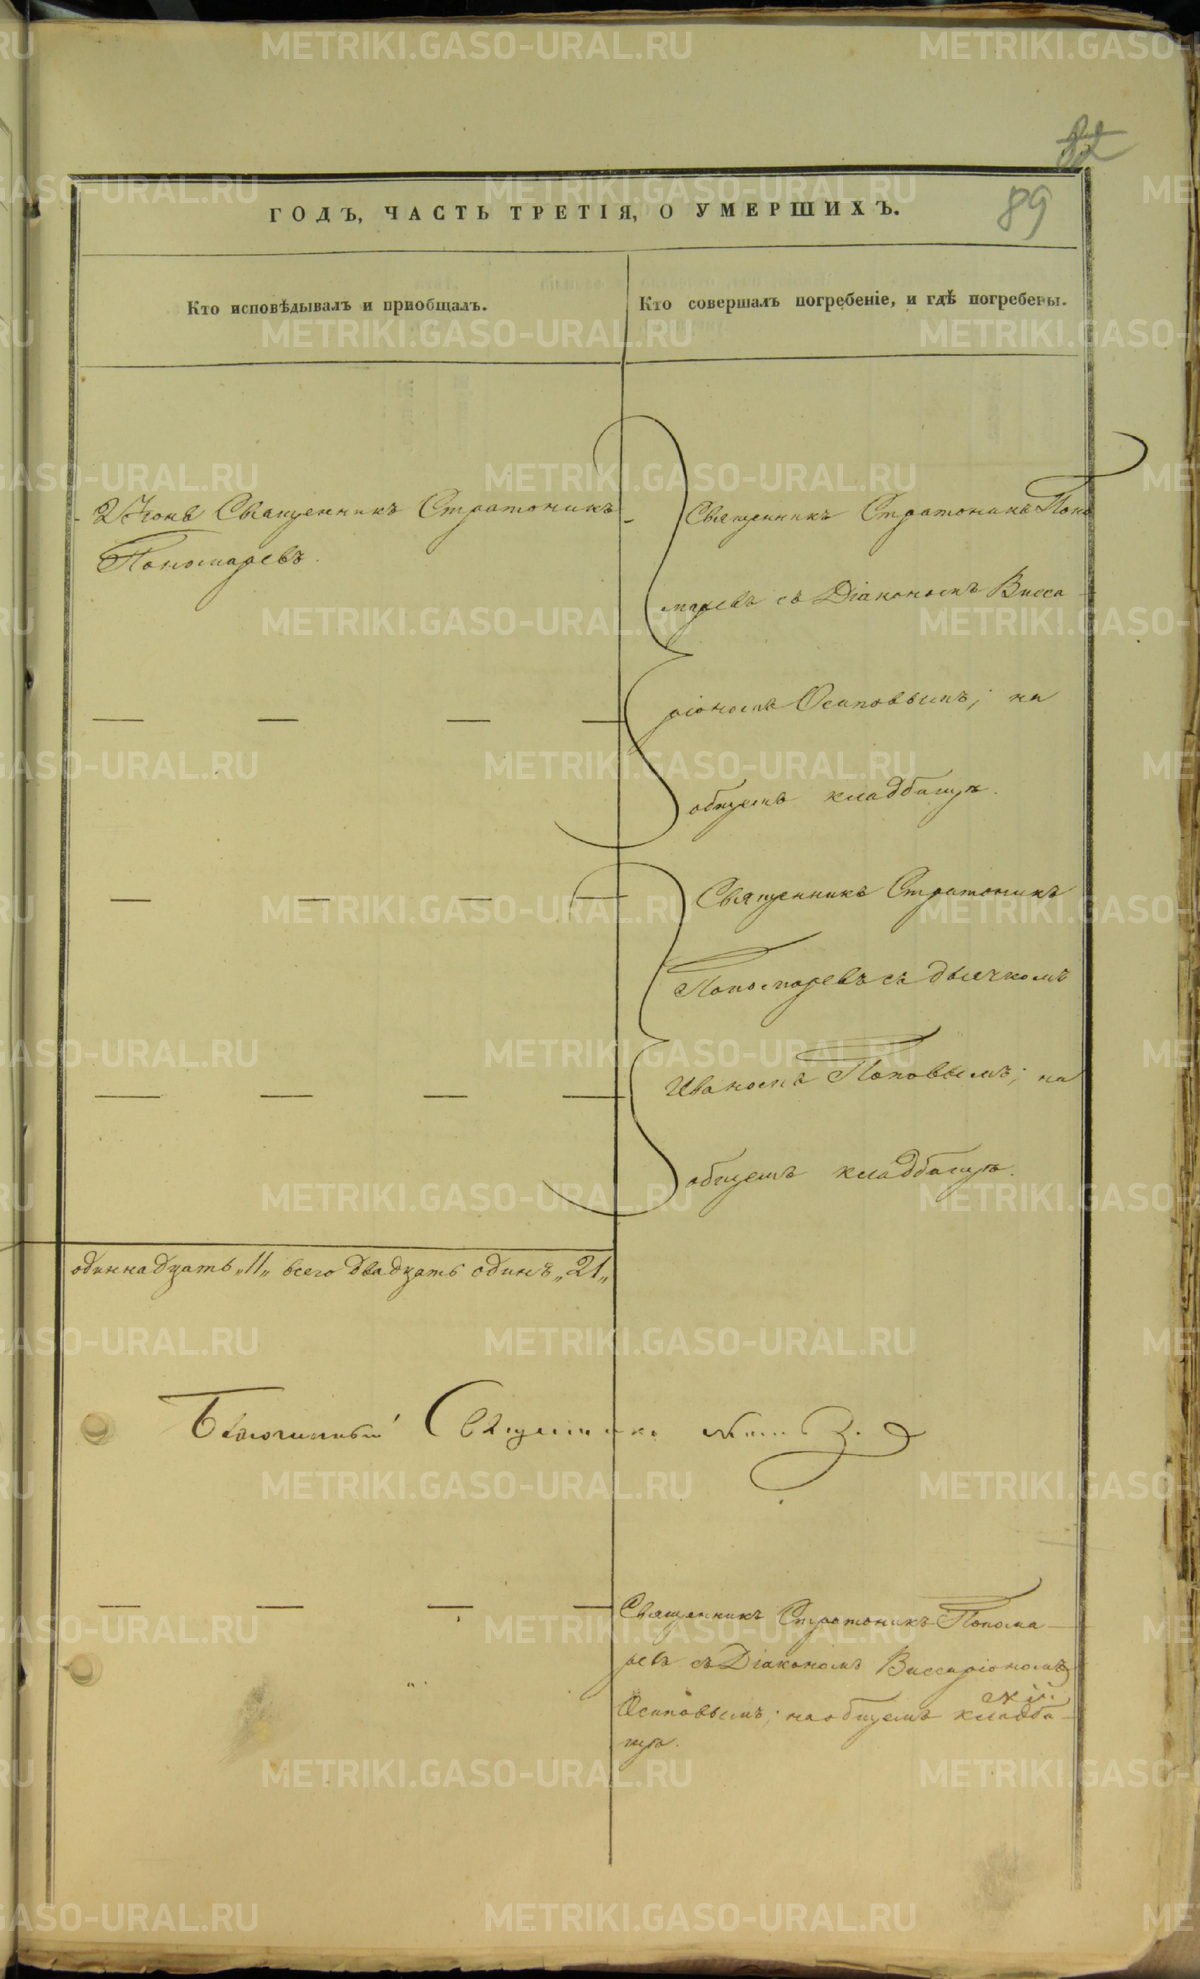 89
ГОДЪ, ЧАСТЬ ТРЕТІЯ, О УМЕРШИХЪ.
Кто исповѣдывалъ и пріобщалъ.
Кто совершалъ погребеніе, и гдѣ погребены.
Священникъ Стратоникъ
Пономаревъ.
Священникъ Стратоникъ Поно
маревъ съ Діакономъ Висса
ріономъ Осиповымъ; на
общемъ кладбищѣ.
Священникъ Стратоникъ
Пономаревъ съ дьячкомъ
Иваномъ Поповымъ; на
общемъ кладбищѣ.
одиннадцать „11„ всего двадцать одинъ „21„
Благочинный Священникъ
Священникъ Стратоникъ Понома
ревъ съ Діакономъ Виссаріономъ
Осиповымъ; на общемъ кладби
щѣ.
METRIKI.GASO-URAL.RU